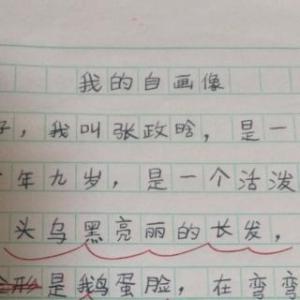 我的自画像
，我叫张政晗，是一
年九岁，是一个活泼
头乌黑亮丽的长发，
是鹅蛋脸，在弯弯